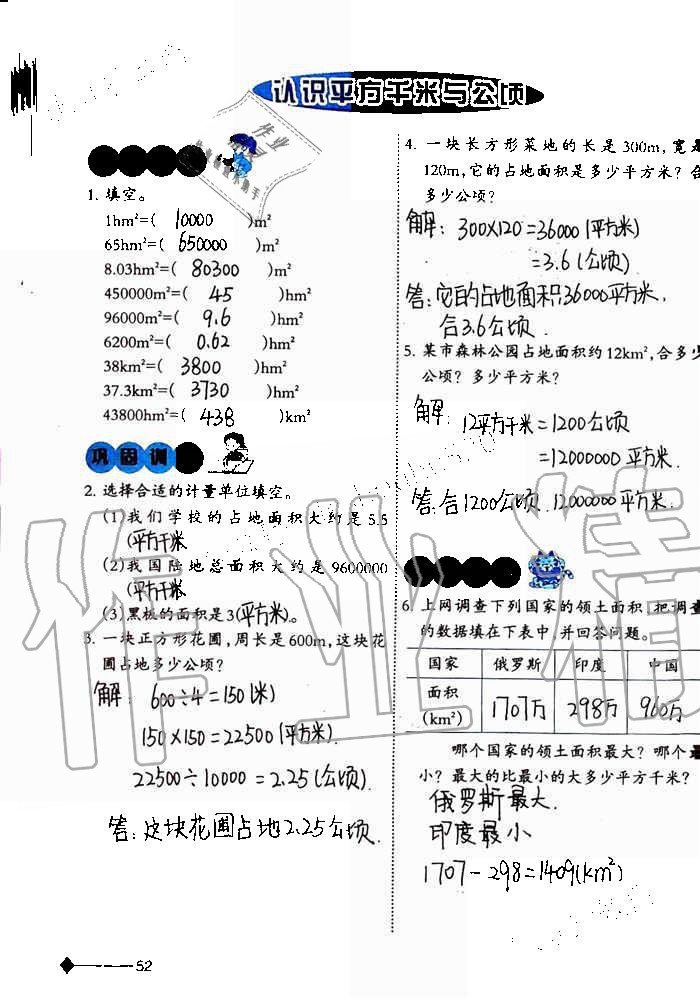 认识平方千米与公顷
1. 填空。
1hm²=( 10000 )m²
65hm²=( 650000 )m²
8.03hm²=( 80300 )m²
450000m²=( 45 )hm²
96000m²=( 9.6 )hm²
6200m²=( 0.62 )hm²
38km²=( 3800 )hm²
37.3km²=( 3730 )hm²
43800hm²=( 438 )km²
巩固训
2. 选择合适的计量单位填空。
(1)我们学校的占地面积大约是5.5
(平方千米
(2)我国陆地总面积大约是9600000
(平方千米
(3)黑板的面积是3(平方米)。
3. 一块正方形花圃,周长是600m,这块花
圃占地多少公顷?
解: 600÷4=150(米)
150×150=22500(平方米)
22500÷10000=2.25(公顷)
答:这块花圃占地2.25公顷.
52
4. 一块长方形菜地的长是300m,宽是
120m,它的占地面积是多少平方米?合
多少公顷?
解: 300×120=36000(平方米)
=3.6(公顷)
答:它的占地面积36000平方米,
合3.6公顷.
5. 某市森林公园占地面积约12km²,合多少
公顷?多少平方米?
解: 12平方千米=1200公顷
=12000000平方米
答:合1200公顷.12000000平方米.
6. 上网调查下列国家的领土面积,把调查
的数据填在下表中,并回答问题。
国家 俄罗斯 印度 中国
面积(km²) 1707万 298万 960万
哪个国家的领土面积最大?哪个最
小?最大的比最小的大多少平方千米?
俄罗斯最大
印度最小
1707-298=1409(km²)
作业精